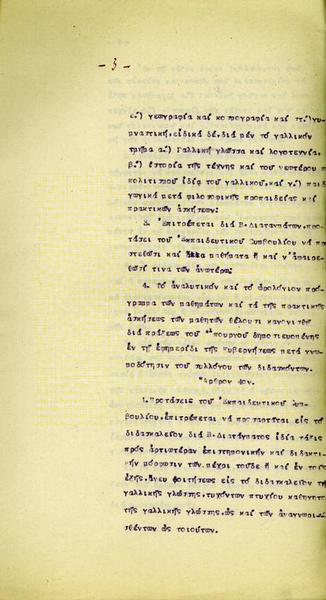 - 3 -
ε.) γεωγραφία καί κοσμογραφία καί στ.)γυ
μναστική,εἰδικά δέ,διά μέν τό γαλλικόν
τμῆμα α.) Γαλλική γλῶσσα καί λογοτεχνία.
β.) ἱστορία τῆς τέχνης καί τοῦ νεωτέρου π
πολιτισμοῦ ἰδίᾳ τοῦ γαλλικοῦ,καί γ.) παιδ
γωγικά μετά φιλοσοφικῆς προπαιδείας καί
πρακτικῶν ἀσκήσεων:
3. Ἐπιτρέπεται διά Β.Διαταγμάτων,προ-
τάσει τοῦ Ἐκπαιδευτικοῦ Συμβουλίου νά πρ
στεθῶσι καί ἄλλα μαθήματα ἤ καί ν'ἀφαιρε
θῶσί τινα τῶν ἀνωτέρω.
4. Τό ἀναλυτικόν καί τό ὡρολόγιον πρό
γραμμα τῶν μαθημάτων καί τά τῆς πρακτικῆς
ἀσκήσεως τῶν μαθητῶν θέλουσι κανονισθῆ
διά πράξεως τοῦ Ὑπουργοῦ δημοσιευομένης
ἐν τῇ ἐφημερίδι τῆς Κυβερνήσεως μετά γνω
μοδότησιν τοῦ συλλόγου τῶν διδασκόντων.
Ἄρθρον 4ον.
1.Προτάσει τοῦ Ἐκπαιδευτικοῦ Συμ
βουλίου,ἐπιτρέπεται νά προσαρτᾶται εἰς τό
διδασκαλεῖον διά Β.Διατάγματος ἰδία τάξις
πρός ἀρτιωτέραν ἐπιστημονικήν καί διδακτι
κήν μόρφωσιν τῶν,μέχρι τοῦδε ἤ καί ἐν τοῖς
ἑξῆς,ἄνευ φοιτήσεως εἰς τό διδασκαλεῖον τῆ
γαλλικῆς γλώσσης,τυχόντων πτυχίου καθηγητο
τῆς γαλλικῆς γλώσσης,ὡς καί τῶν ἀναγνωρι-
σθέντων ὡς τοιούτων.